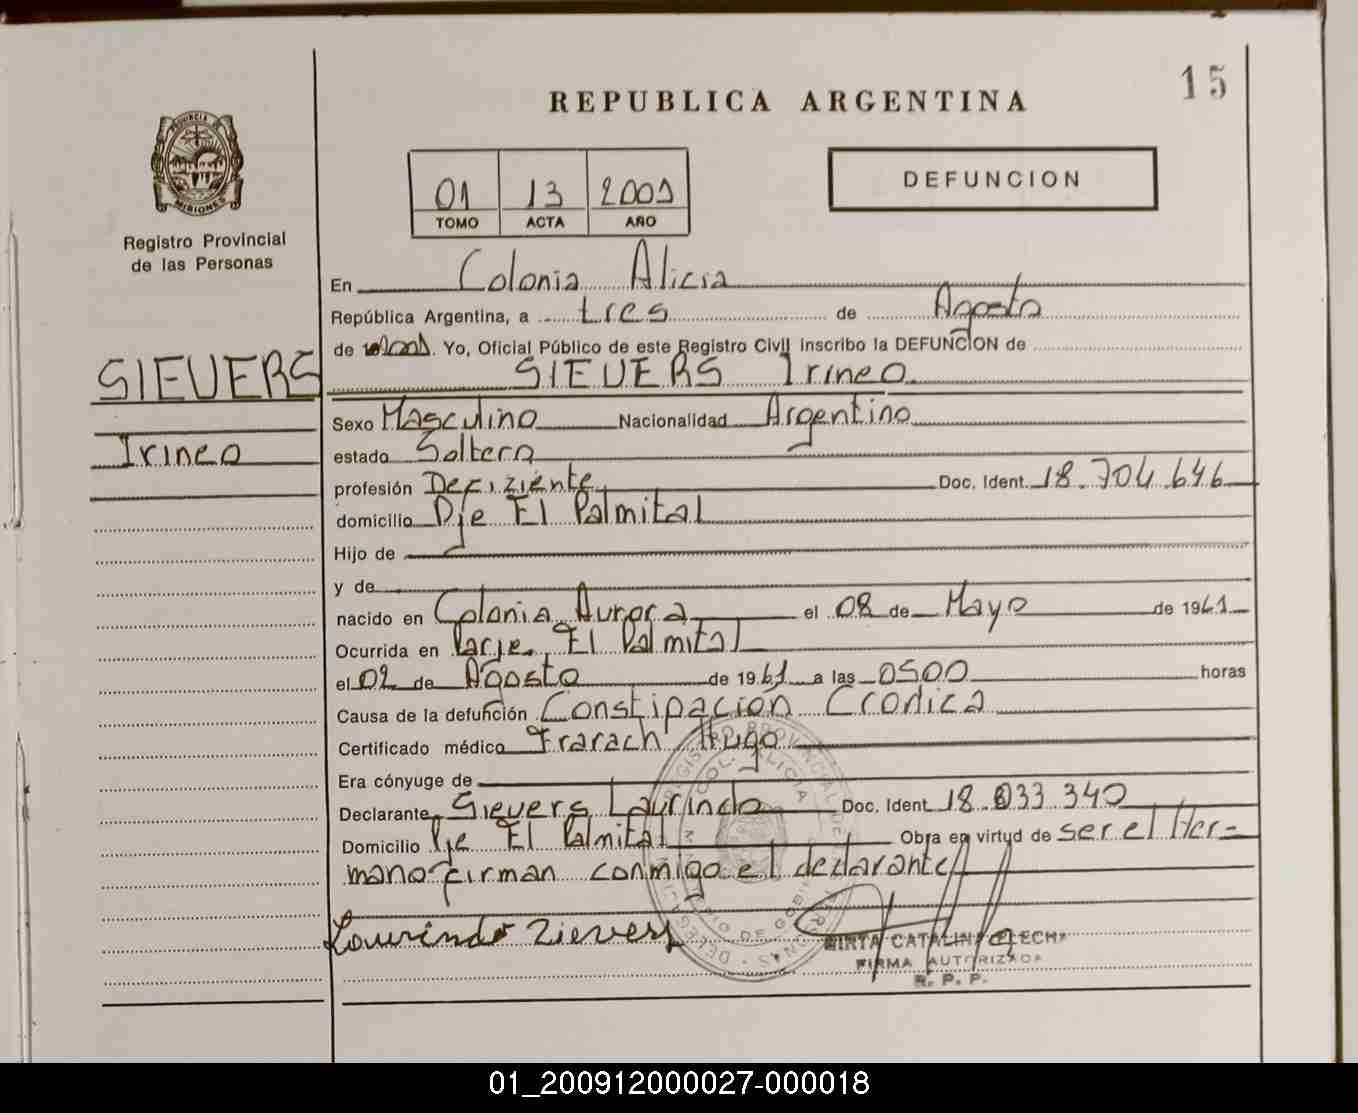 15
REPUBLICA ARGENTINA
PROVINCIA DE
MISIONES
Registro Provincial
de las Personas
01 13 2001
TOMO ACTA AÑO
DEFUNCION
En Colonia Alicia
República Argentina, a tres de Agosto
de 2001. Yo, Oficial Público de este Registro Civil inscribo la DEFUNCION de
SIEVERS Irineo
SIEVERS
Irineo
Sexo Masculino Nacionalidad Argentino
estado Soltero
profesión Defiziente Doc. Ident. 18.704.646
domicilio Pje El Palmital
Hijo de
y de
nacido en Colonia Aurora el 08 de Mayo de 1961
Ocurrida en Parje. El Palmital
el 02 de Agosto de 1961 a las 0500 horas
Causa de la defunción Constipación Cronica
Certificado médico Frarach Hugo
Era cónyuge de
Declarante Sievers Laurindo Doc. Ident 18.033 340
Domicilio Pje El Palmital Obra en virtud de ser el Her=
mano firman conmigo el declarante
Lourindo Zievers
MIRTA CATALINA
FIRMA AUTORIZADA
R. P. P.
01_200912000027-000018